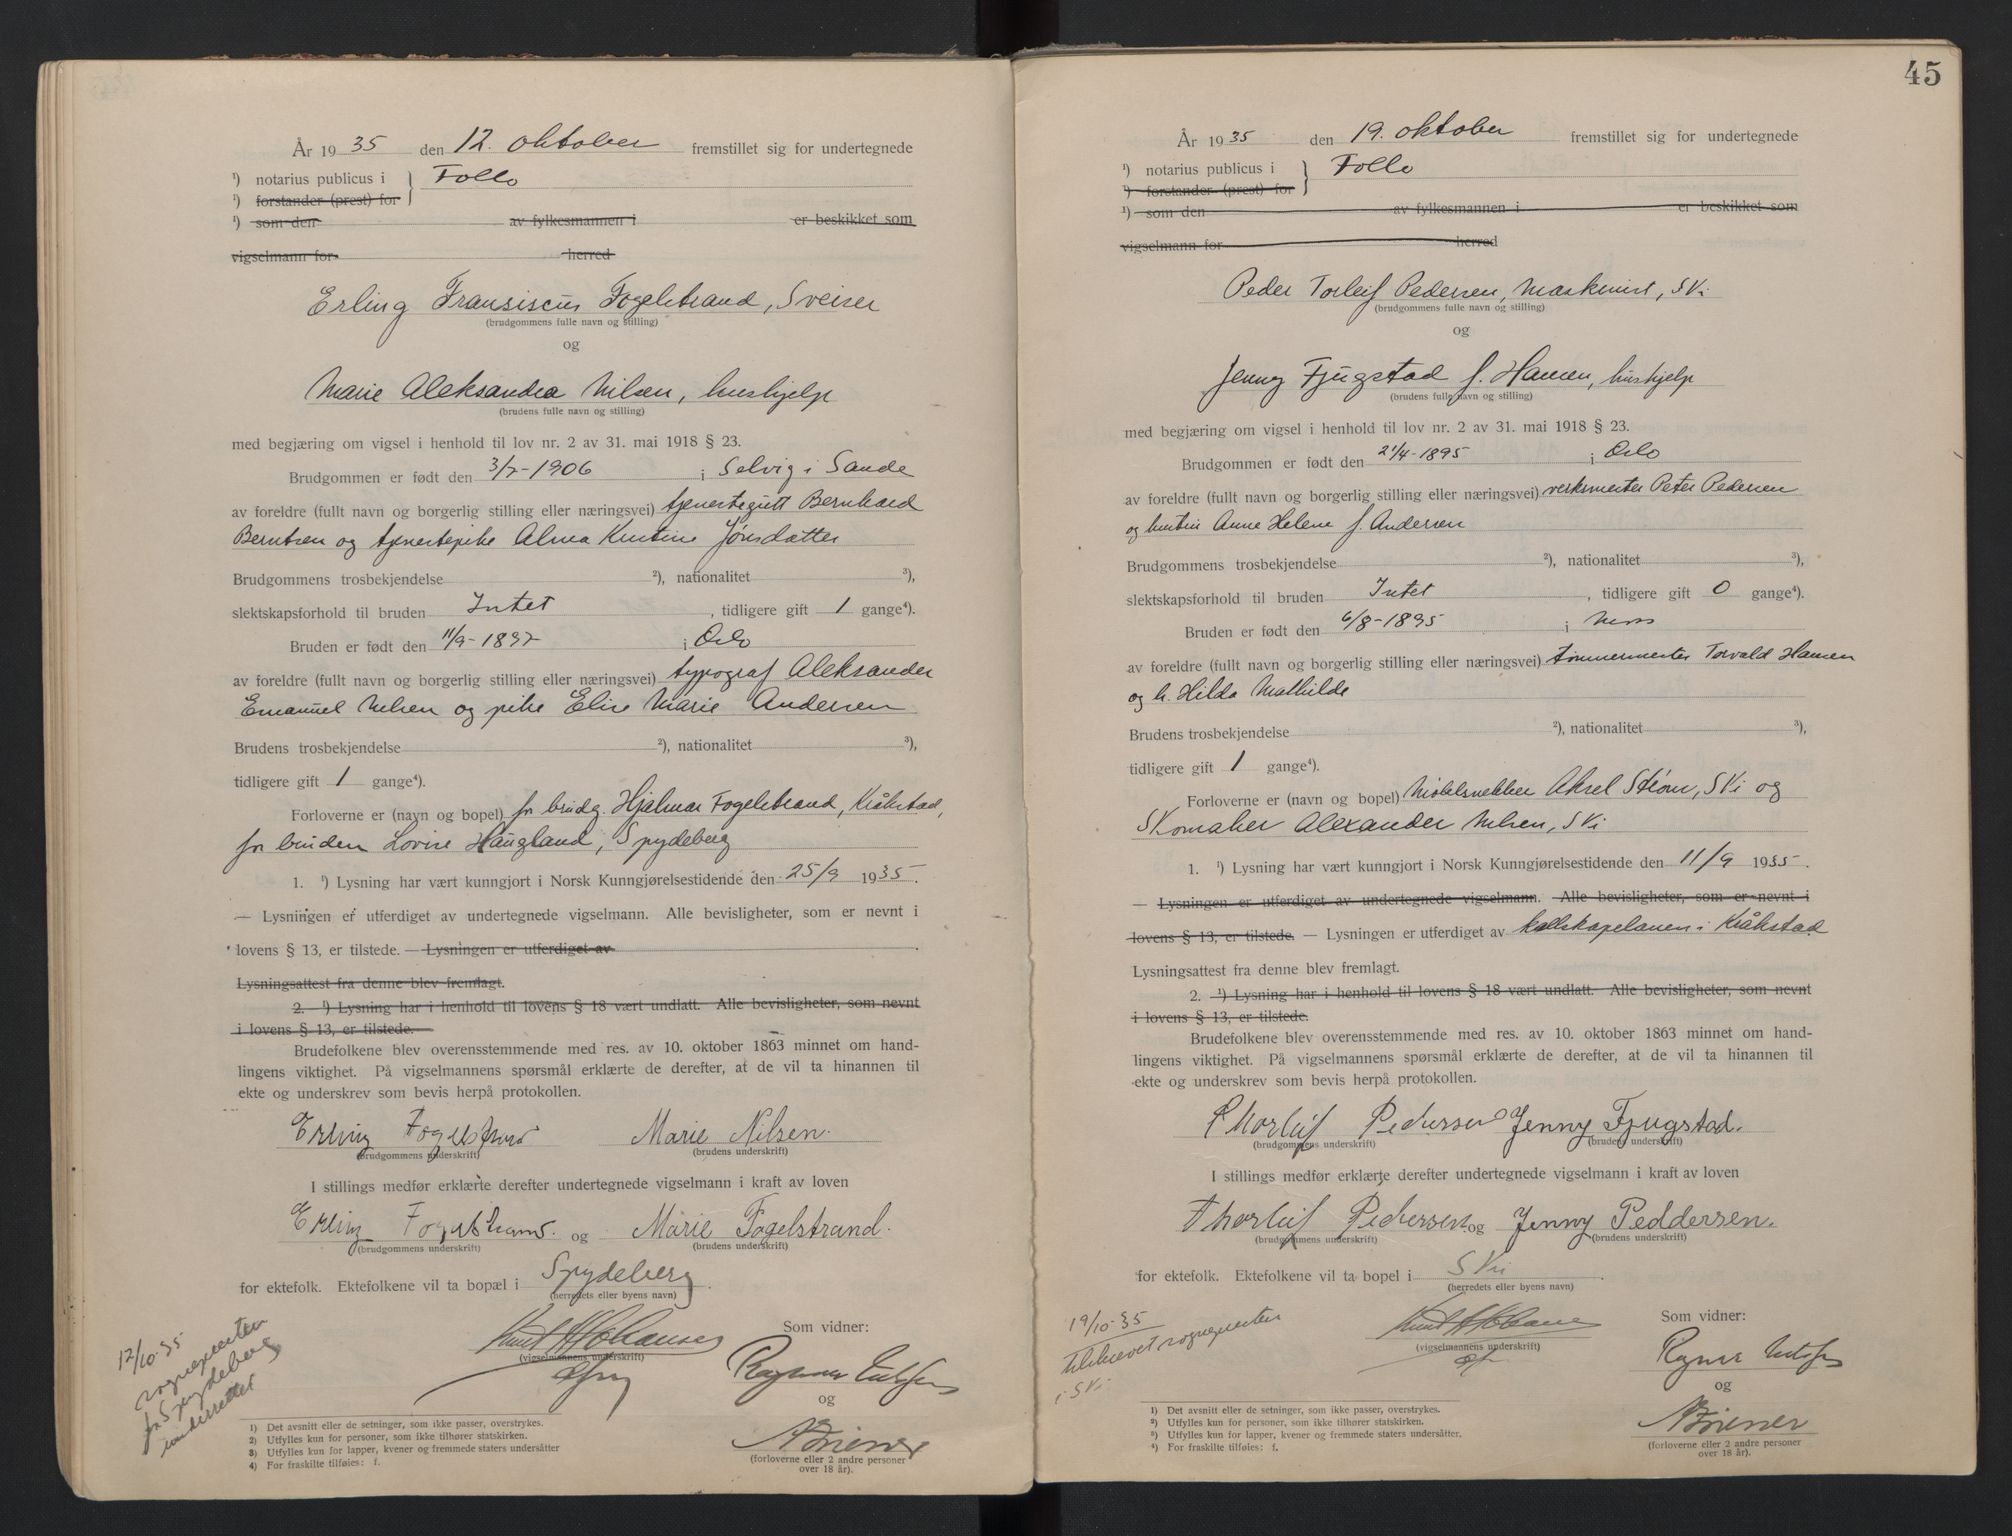 År 1935 den 12. oktober fremstillet sig for undertegnede
¹) notarius publicus i } Follo
¹) forstander (prest) for
¹) som den av fylkesmannen i er beskikket som
vigselmann for herred
Erling Fransiscus Fogelstrand, Sveiser
(brudgommens fulle navn og stilling)
og
Marie Aleksandra Nilsen, hushjelp
(brudens fulle navn og stilling)
med begjæring om vigsel i henhold til lov nr. 2 av 31. mai 1918 § 23.
Brudgommen er født den 3/7-1906 i Selvig i Sande
av foreldre (fullt navn og borgerlig stilling eller næringsvei) tjenestegutt Bernhard
Berntsen og tjenestepike Alma Kristine Jørsdatter
Brudgommens trosbekjendelse ²), nationalitet ³),
slektskapsforhold til bruden Intet, tidligere gift 1 gange⁴).
Bruden er født den 11/9-1897 i Oslo
av foreldre (fullt navn og borgerlig stilling eller næringsvei) typograf Aleksander
Emanuel Nilsen og pike Elise Marie Andersen
Brudens trosbekjendelse ²), nationalitet ³),
tidligere gift 1 gange⁴).
Forloverne er (navn og bopel) for brudg. Hjalmar Fogelstrand, Kråkstad,
for bruden Lovise Haugland, Spydeberg
1. ¹) Lysning har vært kunngjort i Norsk Kunngjørelsestidende den 25/9 1935.
— Lysningen er utferdiget av undertegnede vigselmann. Alle bevisligheter, som er nevnt i
lovens § 13, er tilstede. — Lysningen er utferdiget av
Lysningsattest fra denne blev fremlagt.
2. ¹) Lysning har i henhold til lovens § 18 vært undlatt. Alle bevisligheter, som nevnt
i lovens § 13, er tilstede.
Brudefolkene blev overensstemmende med res. av 10. oktober 1863 minnet om hand-
lingens viktighet. På vigselmannens spørsmål erklærte de derefter, at de vil ta hinannen til
ekte og underskrev som bevis herpå protokollen.
Erling Fogelstrand Marie Nilsen.
(brudgommens underskrift) (brudens underskrift)
I stillings medfør erklærte derefter undertegnede vigselmann i kraft av loven
Erling Fogelstrand. og Marie Fogelstrand.
(brudgommens underskrift) (brudens underskrift)
for ektefolk. Ektefolkene vil ta bopæl i Spydeberg.
(herredets eller byens navn)
Som vidner:
(vigselmannens underskrift)
Ragnar
og
(forloverne eller 2 andre personer
over 18 år).
12/10-35
sognepresten
for Spydeberg
underrettet
1) Det avsnitt eller de setninger, som ikke passer, overstrykes.
2) Utfylles kun for personer, som ikke tilhører statskirken.
3) Utfylles kun for lapper, kvener og fremmede staters undersåtter
4) For fraskilte tilføies: f.
45
År 1935 den 19. oktober fremstillet sig for undertegnede
¹) notarius publicus i } Follo
¹) forstander (prest) for
¹) som den av fylkesmannen i er beskikket som
vigselmann for herred
Peder Torleif Pedersen, Maskinist, Ski
(brudgommens fulle navn og stilling)
og
Jenny Fjugstad f. Hansen, hushjelp
(brudens fulle navn og stilling)
med begjæring om vigsel i henhold til lov nr. 2 av 31. mai 1918 § 23.
Brudgommen er født den 21/4-1895 i Oslo
av foreldre (fullt navn og borgerlig stilling eller næringsvei) verksmester Peter Pedersen
og hustru Anne Helene f. Andersen
Brudgommens trosbekjendelse ²), nationalitet ³),
slektskapsforhold til bruden Intet, tidligere gift 0 gange⁴).
Bruden er født den 6/8-1895 i
av foreldre (fullt navn og borgerlig stilling eller næringsvei) tømmermester Torvald Hansen
og h. Hilda Mathilde
Brudens trosbekjendelse ²), nationalitet ³),
tidligere gift 1 gange⁴).
Forloverne er (navn og bopel) Møbelsnekker Aksel Strøm, Ski og
Skomaker Alexander Nilsen, Ski
1. ¹) Lysning har vært kunngjort i Norsk Kunngjørelsestidende den 11/9 1935.
— Lysningen er utferdiget av undertegnede vigselmann. Alle bevisligheter, som er nevnt i
lovens § 13, er tilstede. — Lysningen er utferdiget av kallskapelanen i Kråkstad
Lysningsattest fra denne blev fremlagt.
2. ¹) Lysning har i henhold til lovens § 18 vært undlatt. Alle bevisligheter, som nevnt
i lovens § 13, er tilstede.
Brudefolkene blev overensstemmende med res. av 10. oktober 1863 minnet om hand-
lingens viktighet. På vigselmannens spørsmål erklærte de derefter, at de vil ta hinannen til
ekte og underskrev som bevis herpå protokollen.
Thorleif Pedersen Jenny Fjugstad.
(brudgommens underskrift) (brudens underskrift)
I stillings medfør erklærte derefter undertegnede vigselmann i kraft av loven
Thorleif Pedersen og Jenny Peddersen.
(brudgommens underskrift) (brudens underskrift)
for ektefolk. Ektefolkene vil ta bopel i Ski.
(herredets eller byens navn)
Som vidner:
(vigselmannens underskrift)
Ragnar
og
(forloverne eller 2 andre personer
over 18 år).
19/10-35
tilskrevet sognepresten
i Ski
1) Det avsnitt eller de setninger, som ikke passer, overstrykes.
2) Utfylles kun for personer, som ikke tilhører statskirken.
3) Utfylles kun for lapper, kvener og fremmede staters undersåtter.
4) For fraskilte tilføies: f.